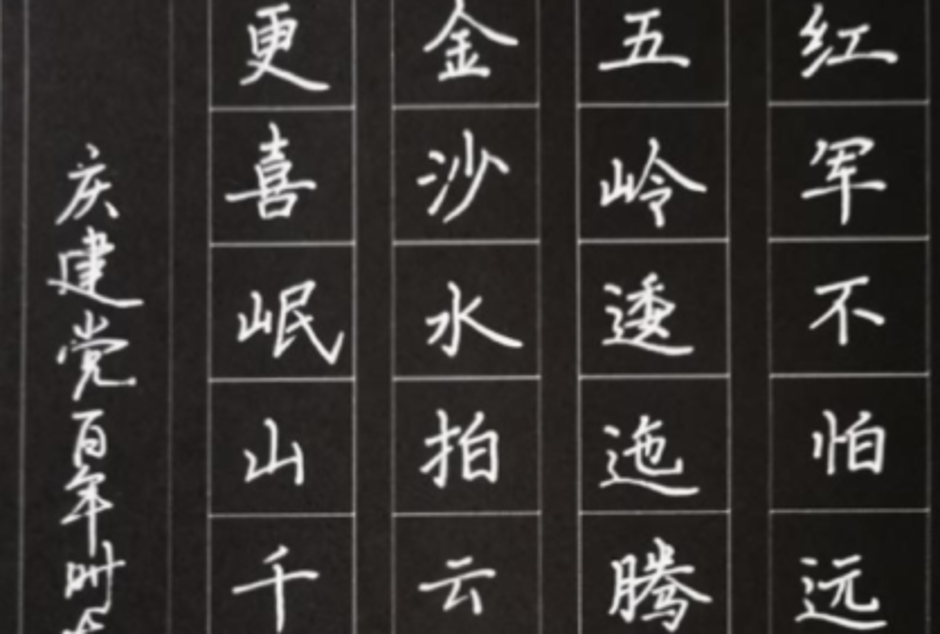 红军不怕远
五岭逶迤腾
金沙水拍云
更喜岷山千
庆建党百年时